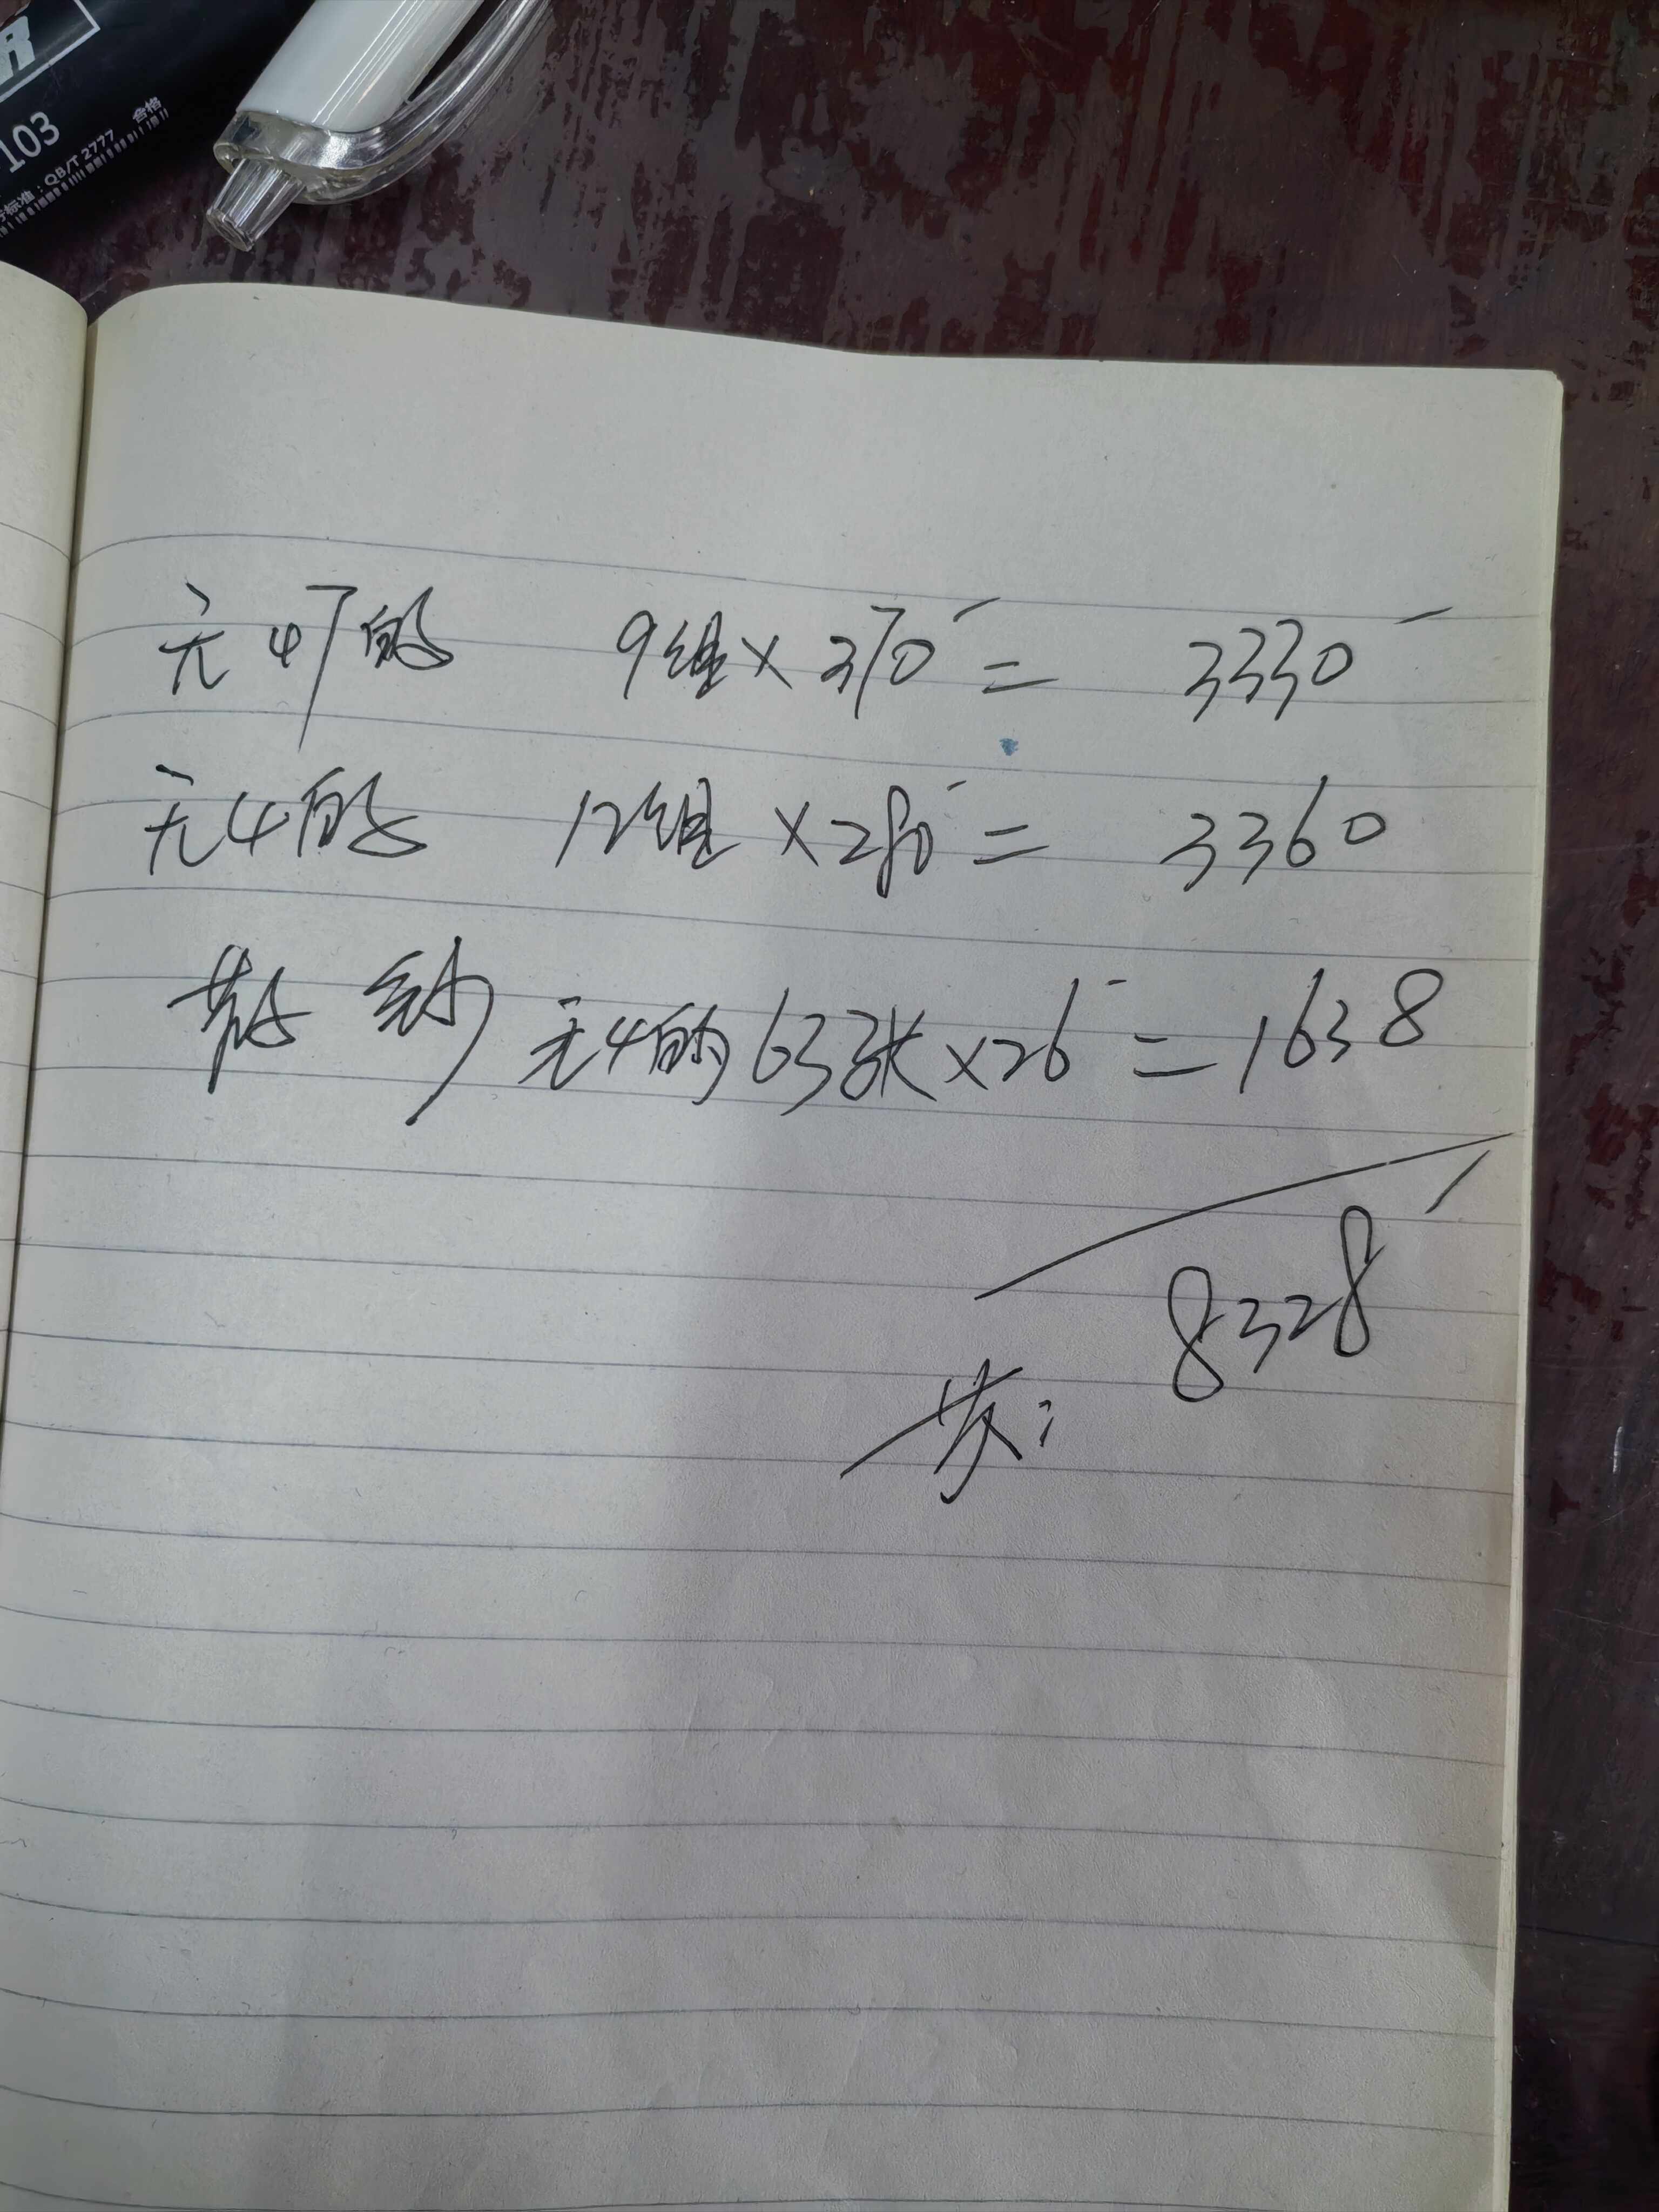 R
103
标准：QB/T 2777 合格
无47的 9组×370=3330
无4的 12组×280=3360
散钞 无4的63张×26=1638
8328
共：